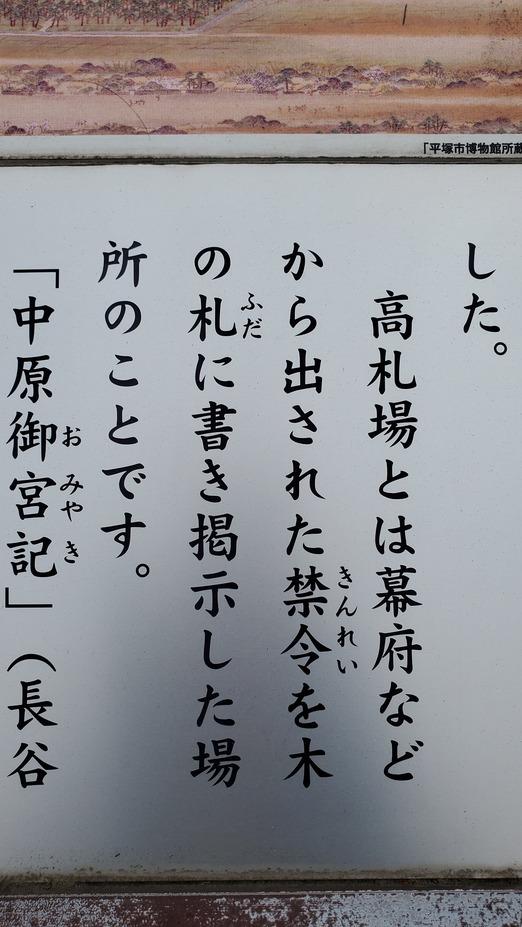 「平塚市博物館所蔵
した。
高札場とは幕府など
から出された禁令を木
きんれい
の札に書き掲示した場
ふだ
所のことです。
「中原御宮記」（長谷
おみやき